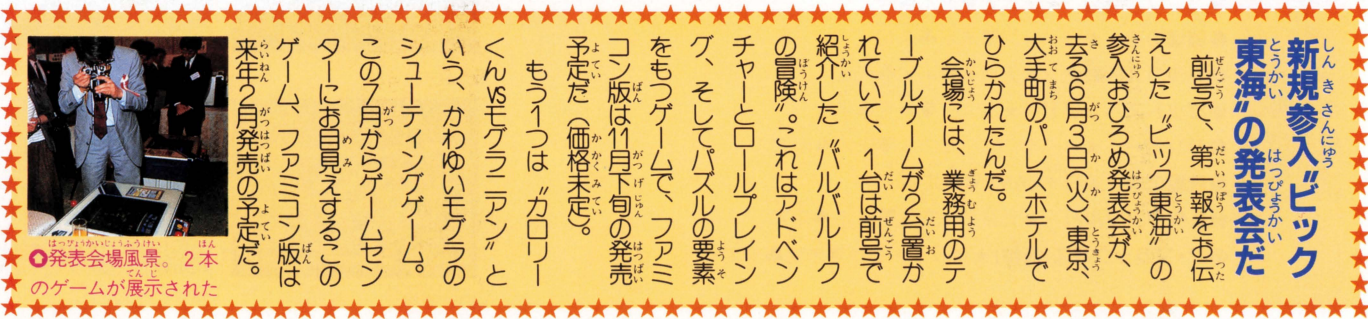 新規参入〝ビック
東海〟の発表会だ
前号で、第一報をお伝
えした〝ビック東海〟の
参入おひろめ発表会が、
去る6月3日(火)、東京、
大手町のパレスホテルで
ひらかれたんだ。
会場には、業務用のテ
ーブルゲームが2台置か
れていて、1台は前号で
紹介した〝バルバルーク
の冒険〟。これはアドベン
チャーとロールプレイン
グ、そしてパズルの要素
をもつゲームで、ファミ
コン版は11月下旬の発売
予定だ(価格未定)。
もう1つは〝カロリー
くんVSモグラニアン〟と
いう、かわゆいモグラの
シューティングゲーム。
この7月からゲームセン
ターにお目見えするこの
ゲーム、ファミコン版は
来年2月発売の予定だ。
発表会場風景。2本
のゲームが展示された